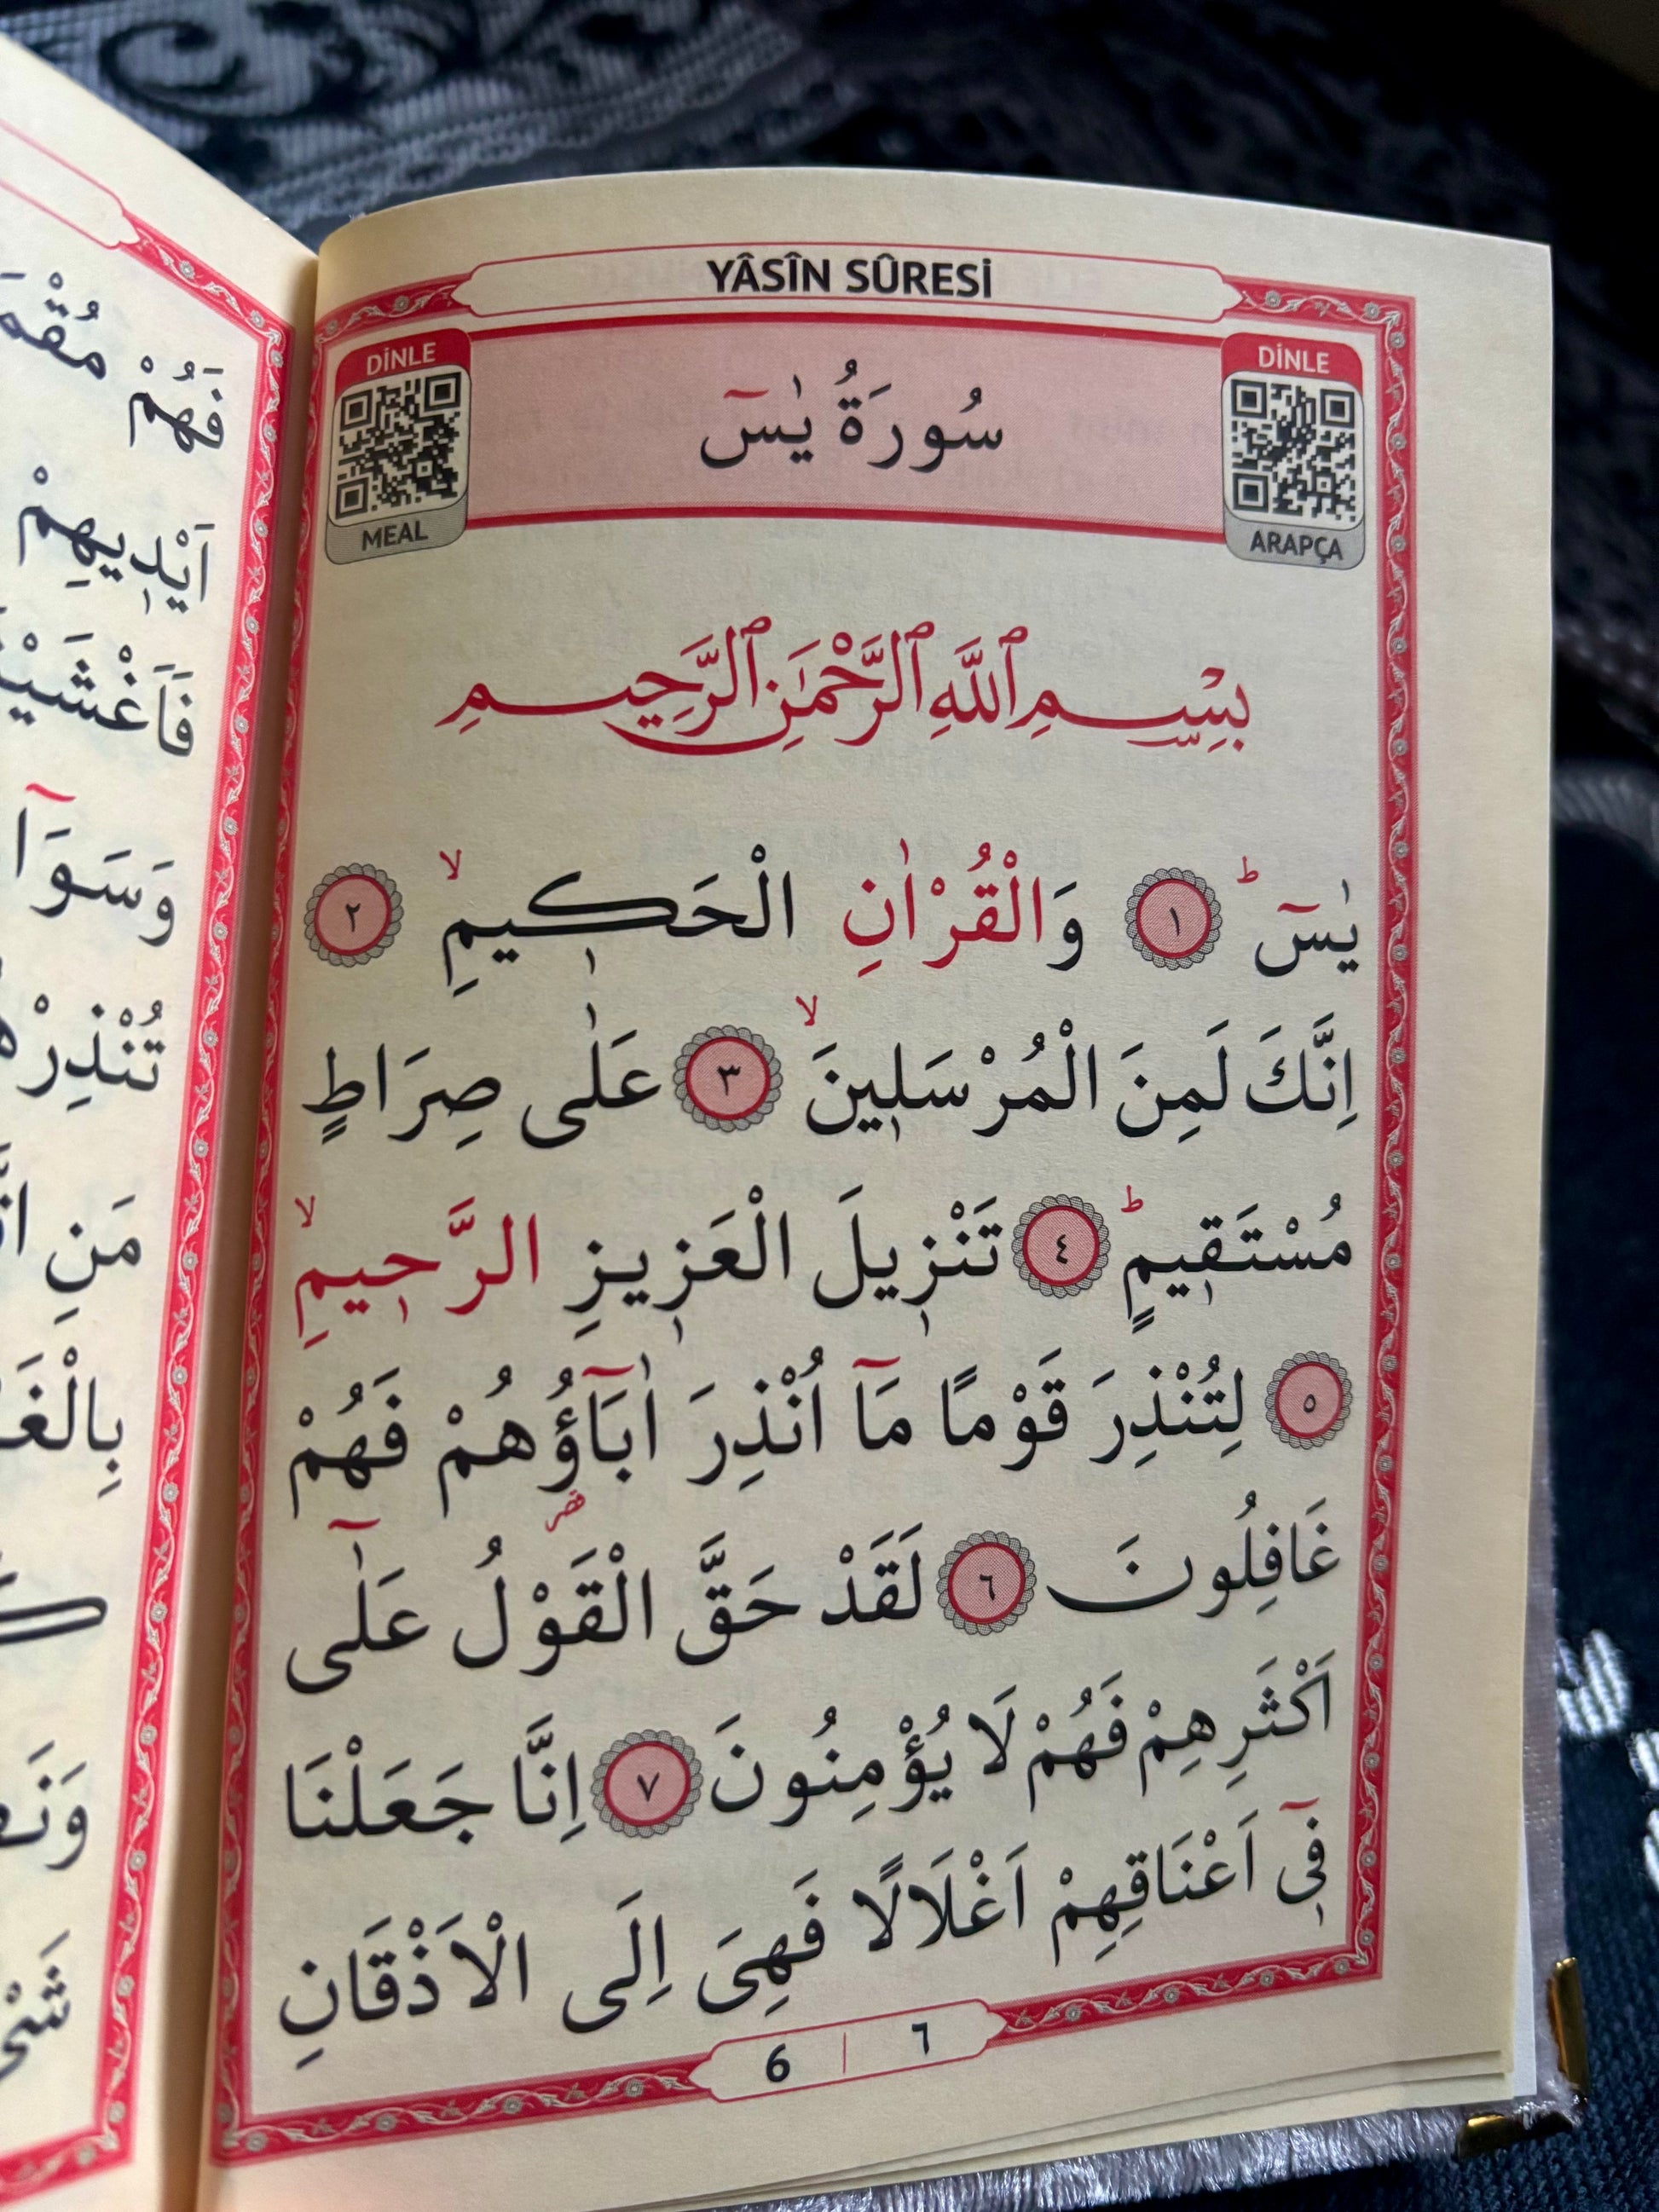 YÂSÎN SÛRESİ
DİNLE
ARAPÇA
سُورَةُ يٰسٓ
DİNLE
MEAL
بِسْمِ ٱللَّهِ ٱلرَّحْمَٰنِ ٱلرَّحِيمِ
يٰسٓ ؕ ١ وَالْقُرْاٰنِ الْحَك۪يمِ ۙ ٢
اِنَّكَ لَمِنَ الْمُرْسَل۪ينَ ۙ ٣ عَلٰى صِرَاطٍ
مُسْتَق۪يمٍ ؕ ٤ تَنْز۪يلَ الْعَز۪يزِ الرَّح۪يمِ ۙ
٥ لِتُنْذِرَ قَوْمًا مَٓا اُنْذِرَ اٰبَٓاؤُ۬هُمْ فَهُمْ
غَافِلُونَ ٦ لَقَدْ حَقَّ الْقَوْلُ عَلٰٓى
اَكْثَرِهِمْ فَهُمْ لَا يُؤْمِنُونَ ٧ اِنَّا جَعَلْنَا
ف۪ٓي اَعْنَاقِهِمْ اَغْلَالًا فَهِيَ اِلَى الْاَذْقَانِ
6 | ٦
فَهُمْ
اَيْد۪يهِمْ
وَسَوَٓا
مَنِ